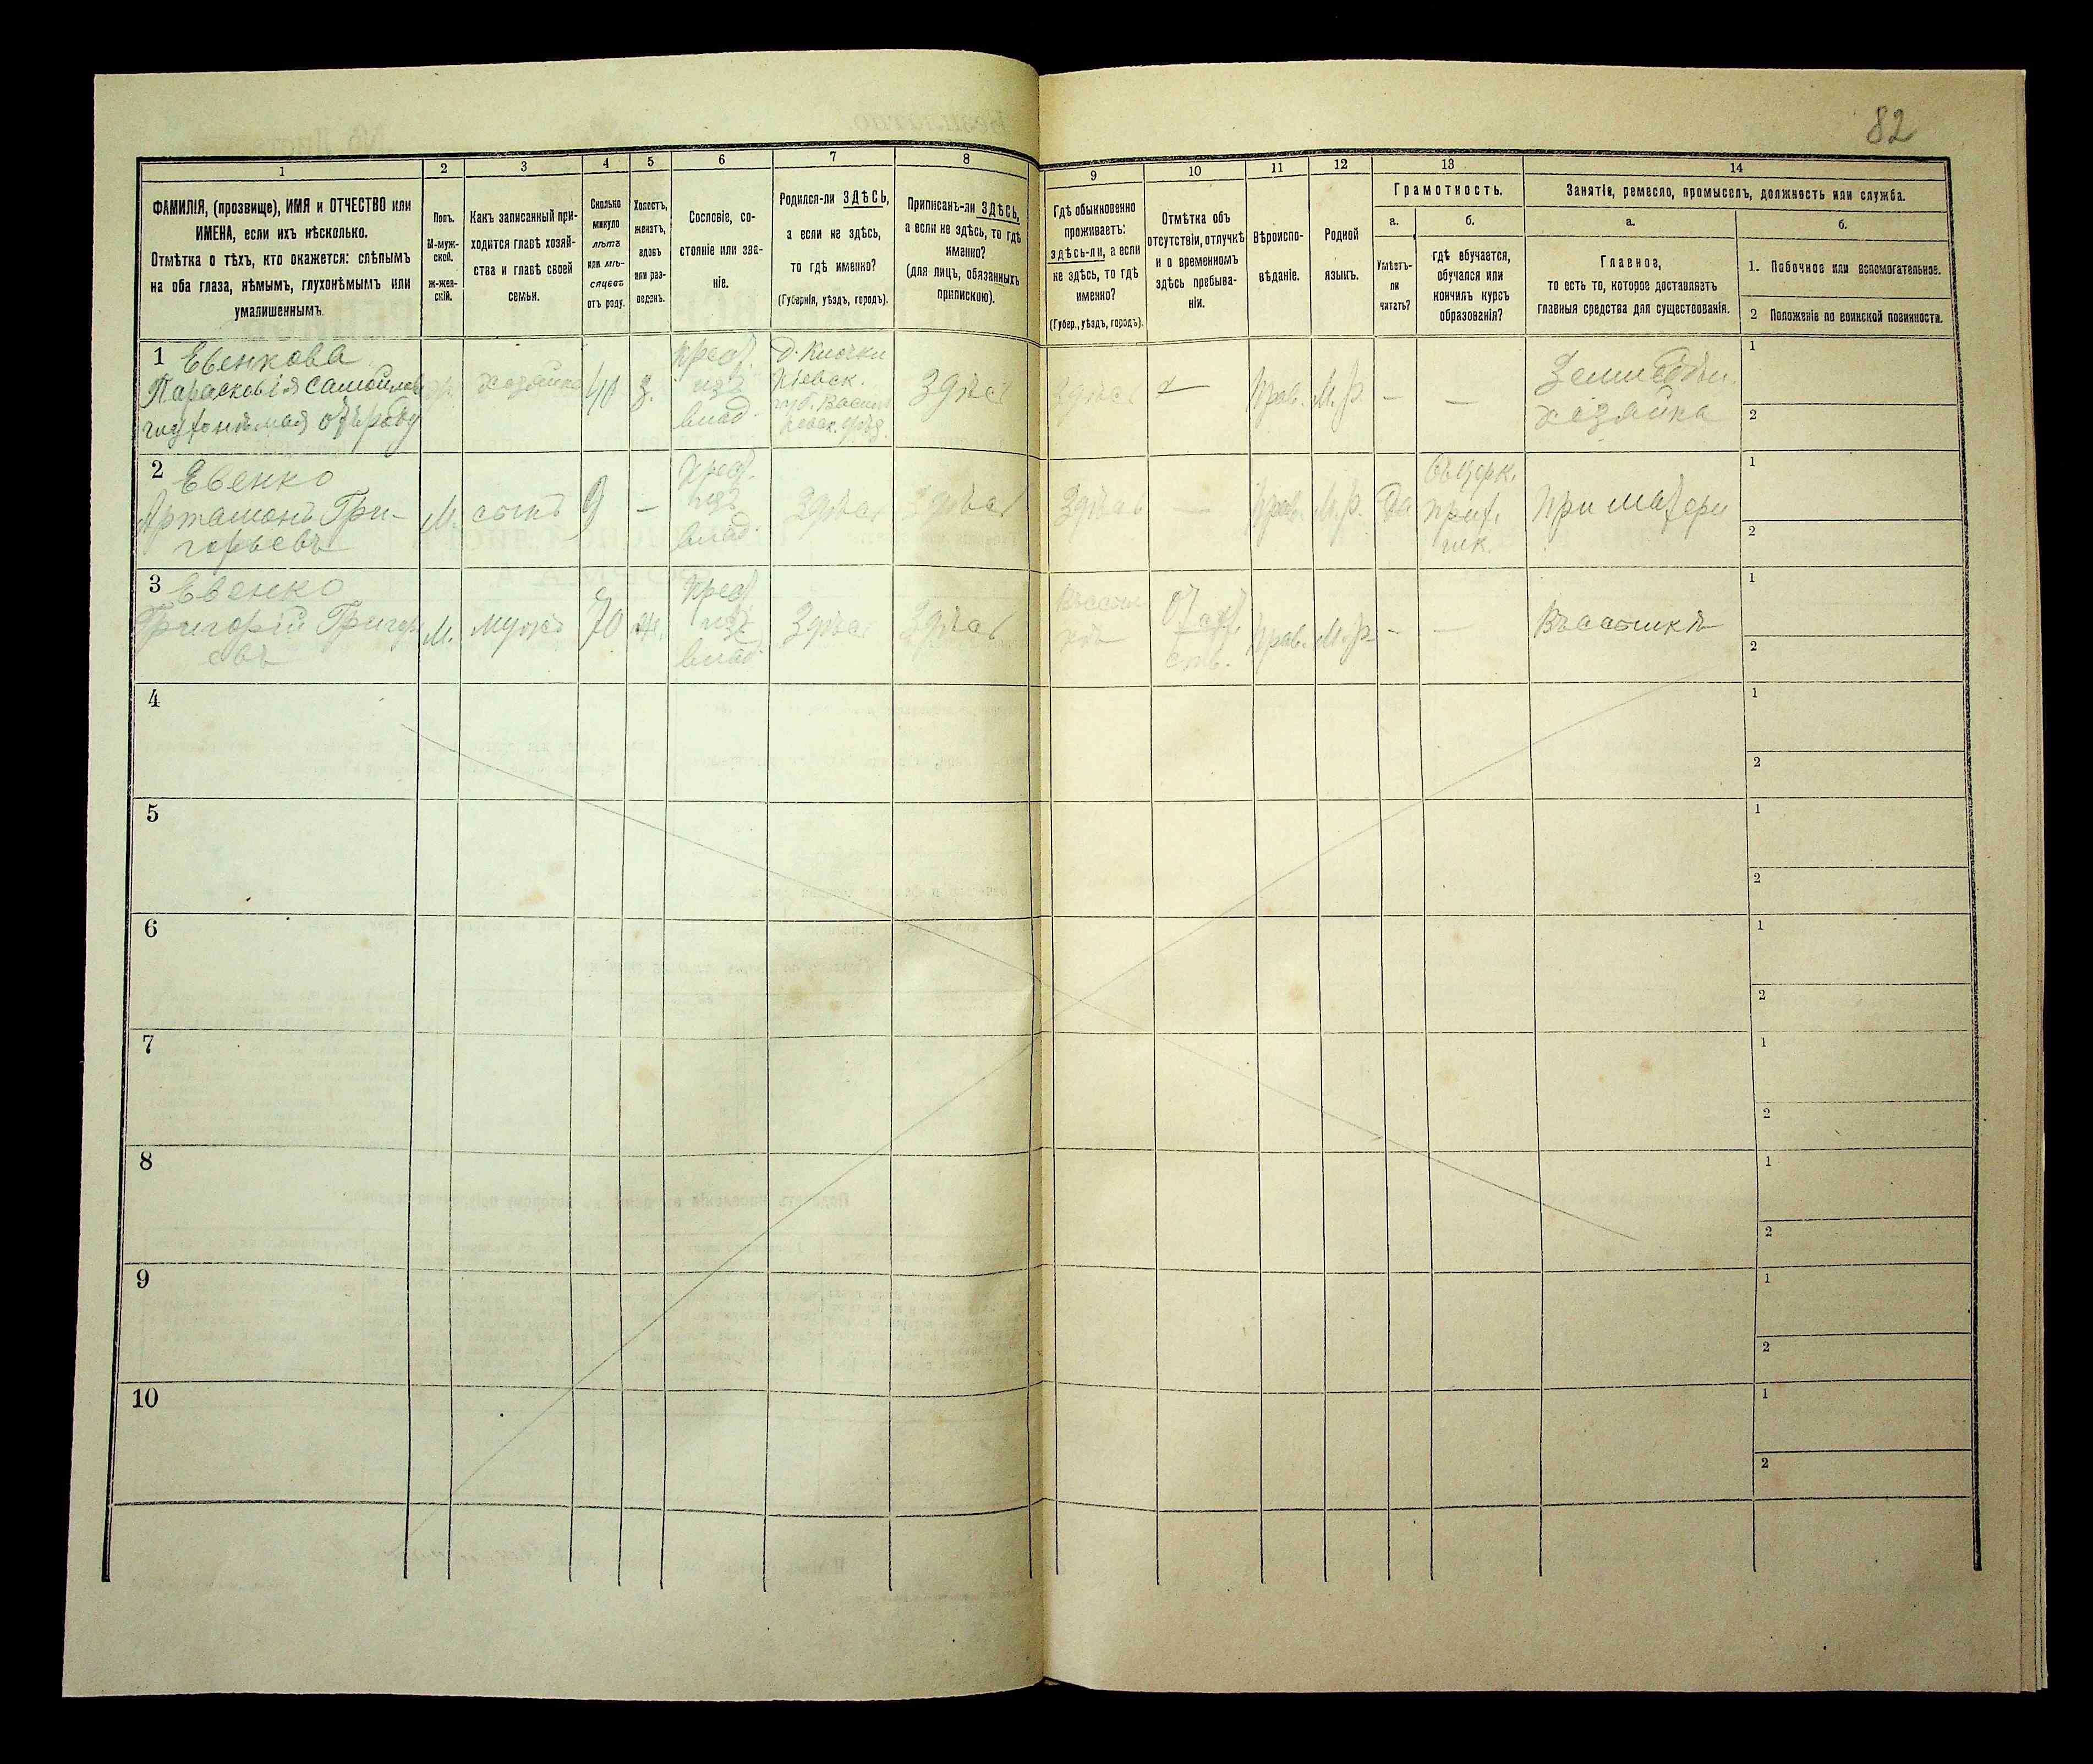 82
1
2
3
4
5
6
7
8
9
10
11
12
13
14
ФАМИЛІЯ, (прозвище), ИМЯ и ОТЧЕСТВО или
ИМЕНА, если ихъ нѣсколько.
Отмѣтка о тѣхъ, кто окажется: слѣпымъ
на оба глаза, нѣмымъ, глухонѣмымъ или
умалишеннымъ.
Полъ.
М-муж-
ской.
ж-жен-
скій.
Какъ записанный при-
ходится главѣ хозяй-
ства и главѣ своей
семьи.
Сколько
минуло
лѣтъ
или мѣ-
сяцевъ
отъ роду.
Холостъ,
женатъ,
вдовъ
или раз-
веденъ.
Сословіе, со-
стояніе или зва-
ніе.
Родился-ли ЗДѢСЬ,
а если не здѣсь,
то гдѣ именно?
(Губернія, уѣздъ, городъ).
Приписанъ-ли ЗДѢСЬ,
а если не здѣсь, то гдѣ
именно?
(для лицъ, обязанныхъ
припискою).
Гдѣ обыкновенно
проживаетъ:
здѣсь-ли, а если
не здѣсь, то гдѣ
именно?
(Губер., уѣздъ, городъ).
Отмѣтка объ
отсутствіи, отлучкѣ
и о временномъ
здѣсь пребыва-
ніи.
Вѣроиспо-
вѣданіе.
Родной
языкъ.
Грамотность.
а.
Умѣетъ-
ли
читать?
б.
гдѣ обучается,
обучался или
кончилъ курсъ
образованія?
Занятіе, ремесло, промыселъ, должность или служба.
а.
Главное,
то есть то, которое доставляетъ
главныя средства для существованія.
б.
1. Побочное или вспомогательное.
2 Положеніе по воинской повинности.
1 Евенкова
Парасковія Самойлов
хозяйка
40
З.
Крест.
изъ
влад.
Кіевск.
губ.
Здѣсь
Здѣсь
—
Прав.
М. р.
—
—
хозяйка
1
2
2 Евенко
Артамонъ Гри-
горьевъ
М.
сынъ
9
—
Крест.
изъ
влад.
Здѣсь
Здѣсь
Здѣсь
—
Прав.
М. р.
Да
При матери
1
2
3 Евенко
Григорій Григор
евъ
М.
мужъ
70
Ж.
Крест
изъ
влад.
Здѣсь
Здѣсь
Прав.
М. р.
—
—
1
2
4
1
2
5
1
2
6
1
2
7
1
2
8
1
2
9
1
2
10
1
2